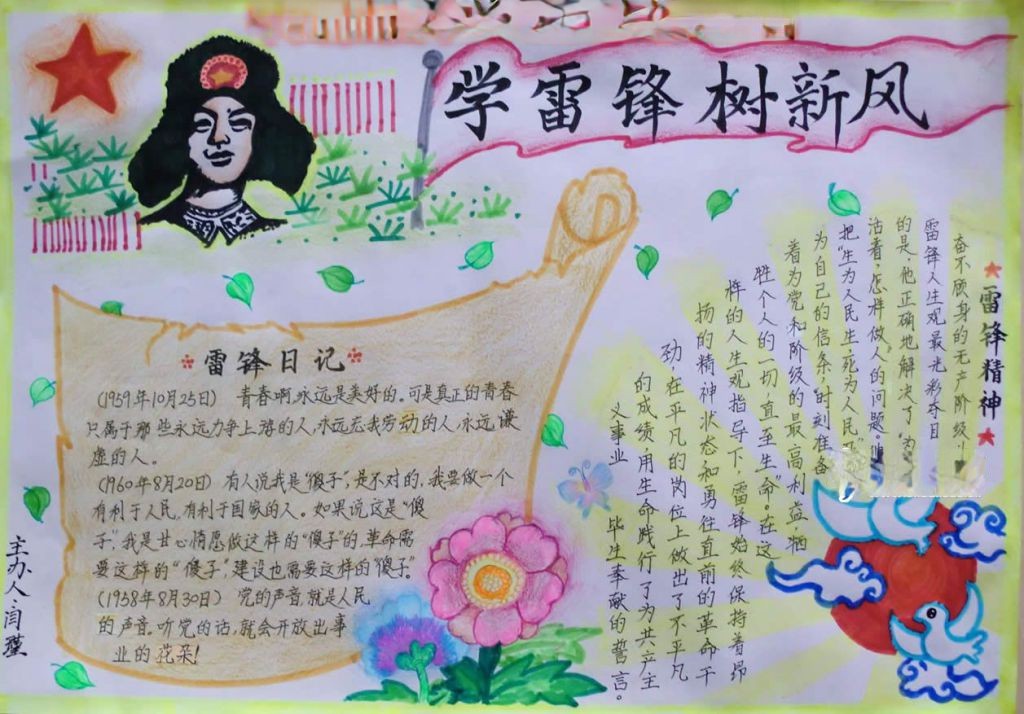 学雷锋树新风
雷锋日记
(1959年10月25日) 青春啊,永远是美好的。可是真正的青春
只属于那些永远力争上游的人,永远忘我劳动的人,永远谦
虚的人。
(1960年8月20日) 有人说我是“傻子”,是不对的,我要做一个
有利于人民,有利于国家的人。如果说这是“傻
子”,我是甘心情愿做这样的“傻子”的,革命需
要这样的“傻子”,建设也需要这样的“傻子”。
(1958年8月30日) 党的声音,就是人民
的声音。听党的话,就会开放出事
业的花朵!
主办人:闫瑾
雷锋精神
奋不顾身的无产阶级
雷锋人生观最光彩夺目
的是,他正确地解决了“为
活着,怎样做人”的问题。
把“生为人民生,死为人民
为自己的信条,时刻准备
着为党和阶级的最高利益牺
牲个人的一切,直至生命”。在这
样的人生观指导下,雷锋始终保持着昂
扬的精神状态和勇往直前的革命干
劲,在平凡的岗位上做出了不平凡
的成绩,用生命践行了为共产主
义事业 毕生奉献的誓言。